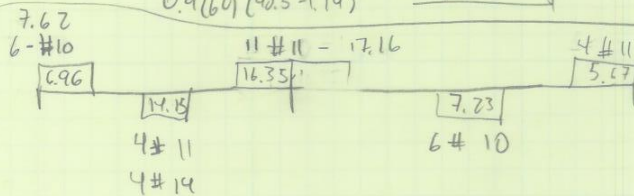 0.9(60)(40.5-1.19)
7.62
6-#10
11 #11 - 17.16
4 #11
6.96
16.35
5.67
14.15
7.23
4# 11
4# 14
6# 10